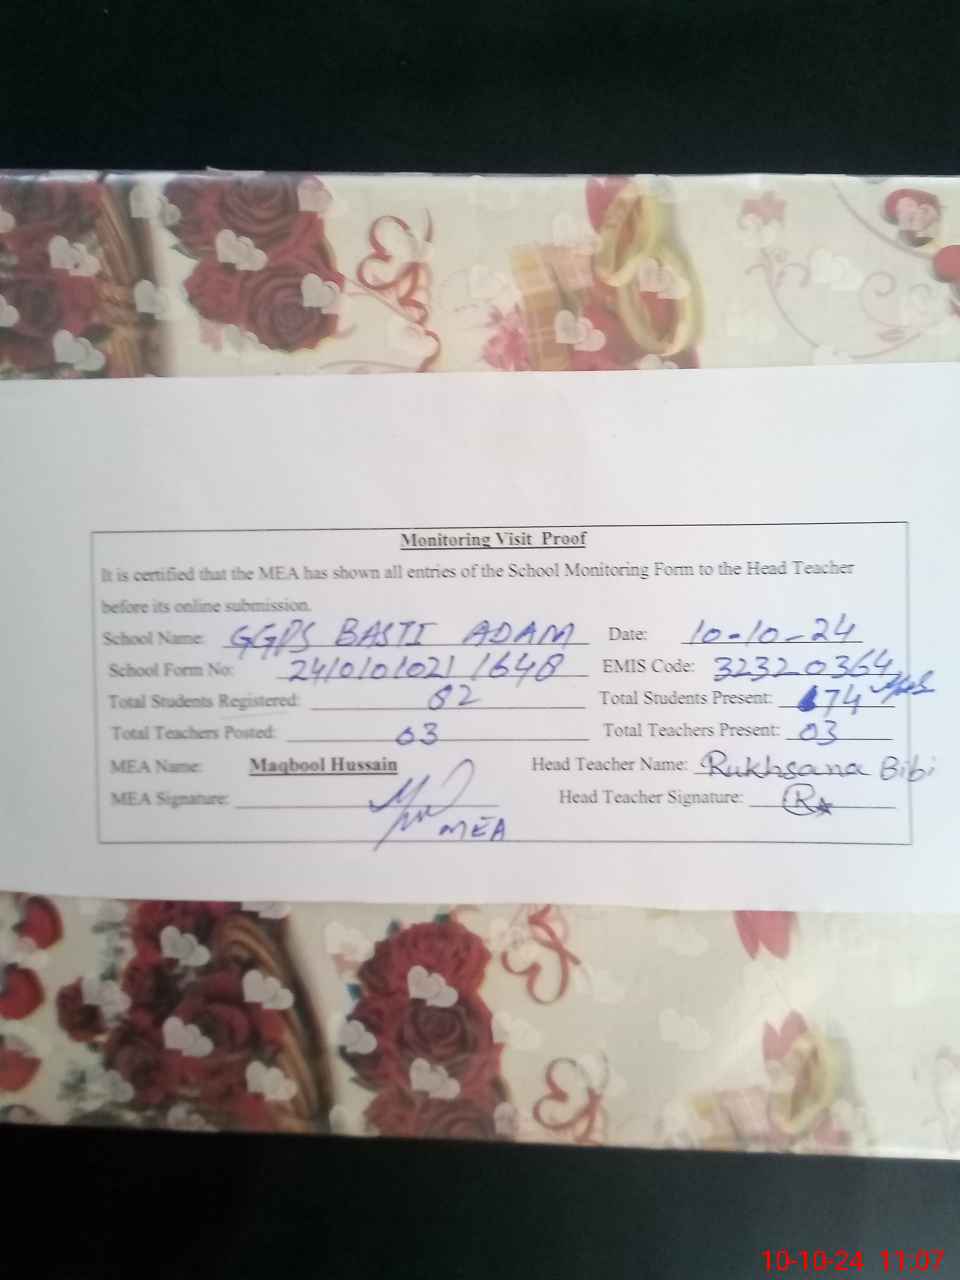 Monitoring Visit Proof
It is certified that the MEA has shown all entries of the School Monitoring Form to the Head Teacher
before its online submission.
School Name: GGPS BASTI ADAM Date: 10-10-24
School Form No: 24101010211648 EMIS Code: 32320364
Total Students Registered: 82 Total Students Present: 74
Total Teachers Posted: 03 Total Teachers Present: 03
MEA Name: Maqbool Hussain Head Teacher Name: Rukhsana Bibi
MEA Signature: Head Teacher Signature:
MEA
10-10-24 11:07